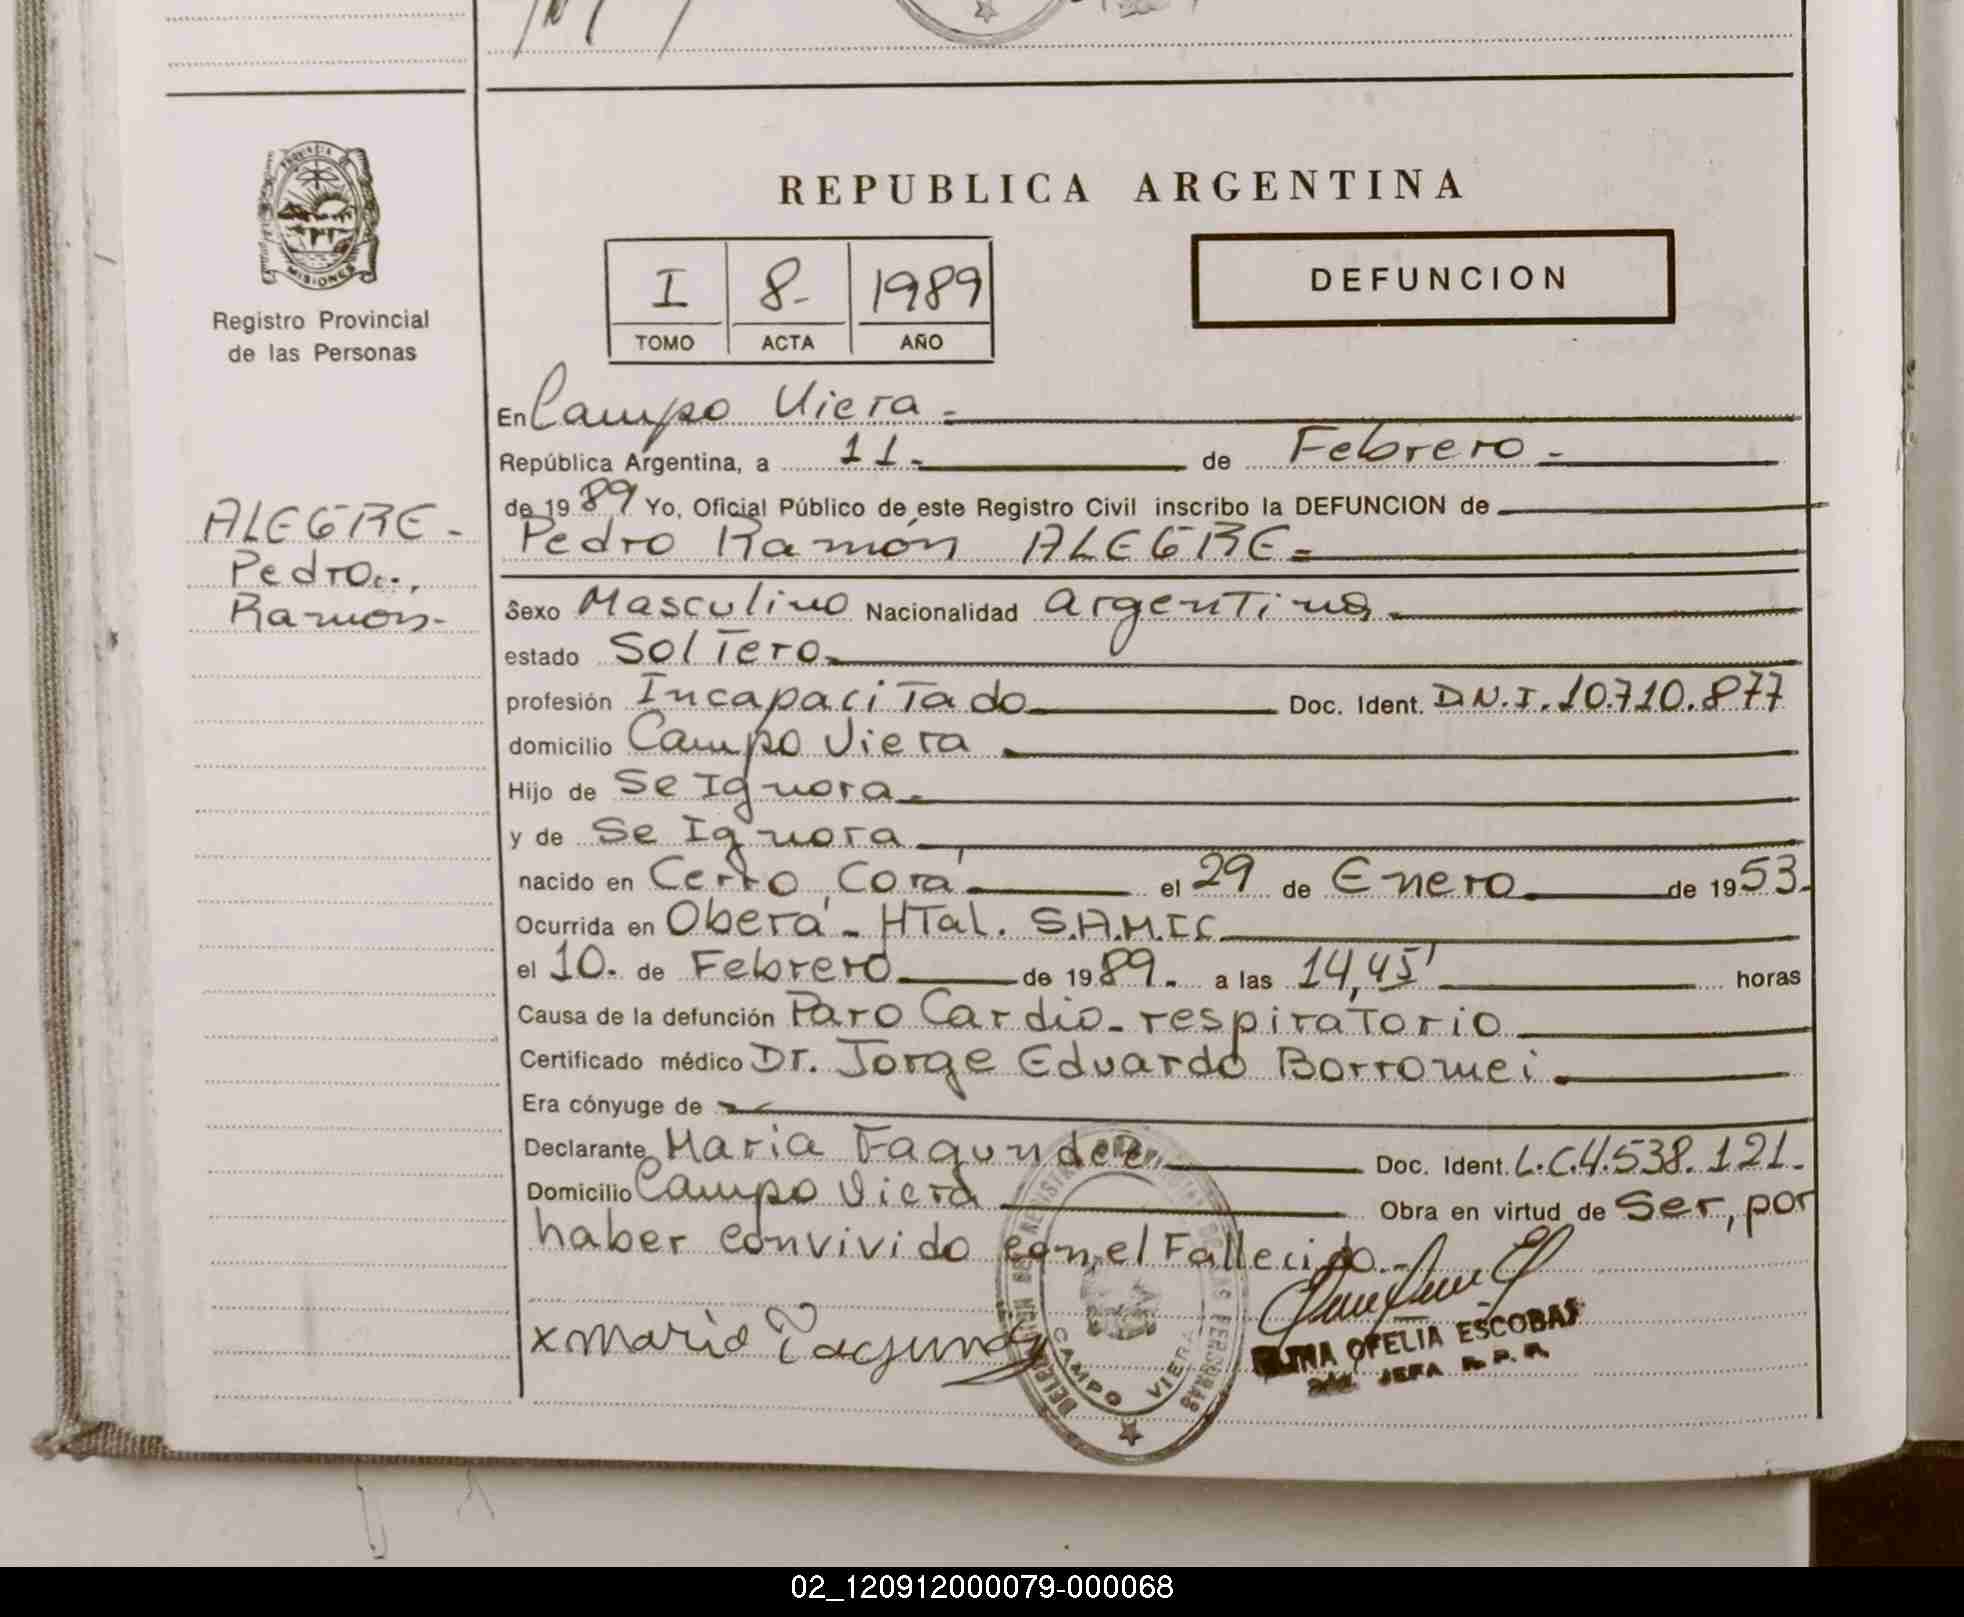 PROVINCIA DE
MISIONES
Registro Provincial
de las Personas
ALEGRE -
Pedro
Ramon -
REPUBLICA ARGENTINA
I 8- 1989
TOMO ACTA AÑO
DEFUNCION
En Campo Viera =
República Argentina, a 11.- de Febrero -
de 1989 Yo, Oficial Público de este Registro Civil inscribo la DEFUNCION de
Pedro Ramón ALEGRE =
Sexo Masculino Nacionalidad argentina
estado SolTero
profesión IncapaciTado Doc. Ident. D.N.I. 10.710.877
domicilio Campo Viera
Hijo de Se Ignora
y de Se Ignora
nacido en Cerro Corá el 29 de Enero de 1953.
Ocurrida en Oberá - HTal. S.A.M.I.C
el 10. de Febrero de 1989. a las 14,45' horas
Causa de la defunción Paro Cardio-respiraTorio
Certificado médico Dr. Jorge Eduardo Borromei
Era cónyuge de
Declarante Maria Fagundez Doc. Ident. L.C.4.538.121.
Domicilio Campo Viera Obra en virtud de Ser, por
haber convivido con el Fallecido.-
x maria Fagundez
CAMPO VIERA
OFELIA ESCOBAR
JEFA R. P. P.
02_120912000079-000068